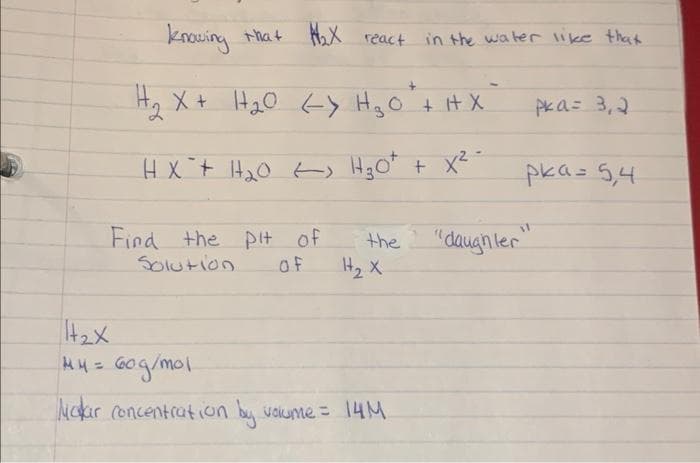 knowing that H₂X react in the water like that
H₂X + H₂O <-> H₃O⁺ + HX⁻ pka = 3,2
HX⁻ + H₂O <-> H₃O⁺ + X²⁻ pka = 5,4
Find the pH of the "daughter"
solution of H₂X
H₂X
MM = 60g/mol
Molar concentration by volume = 14M